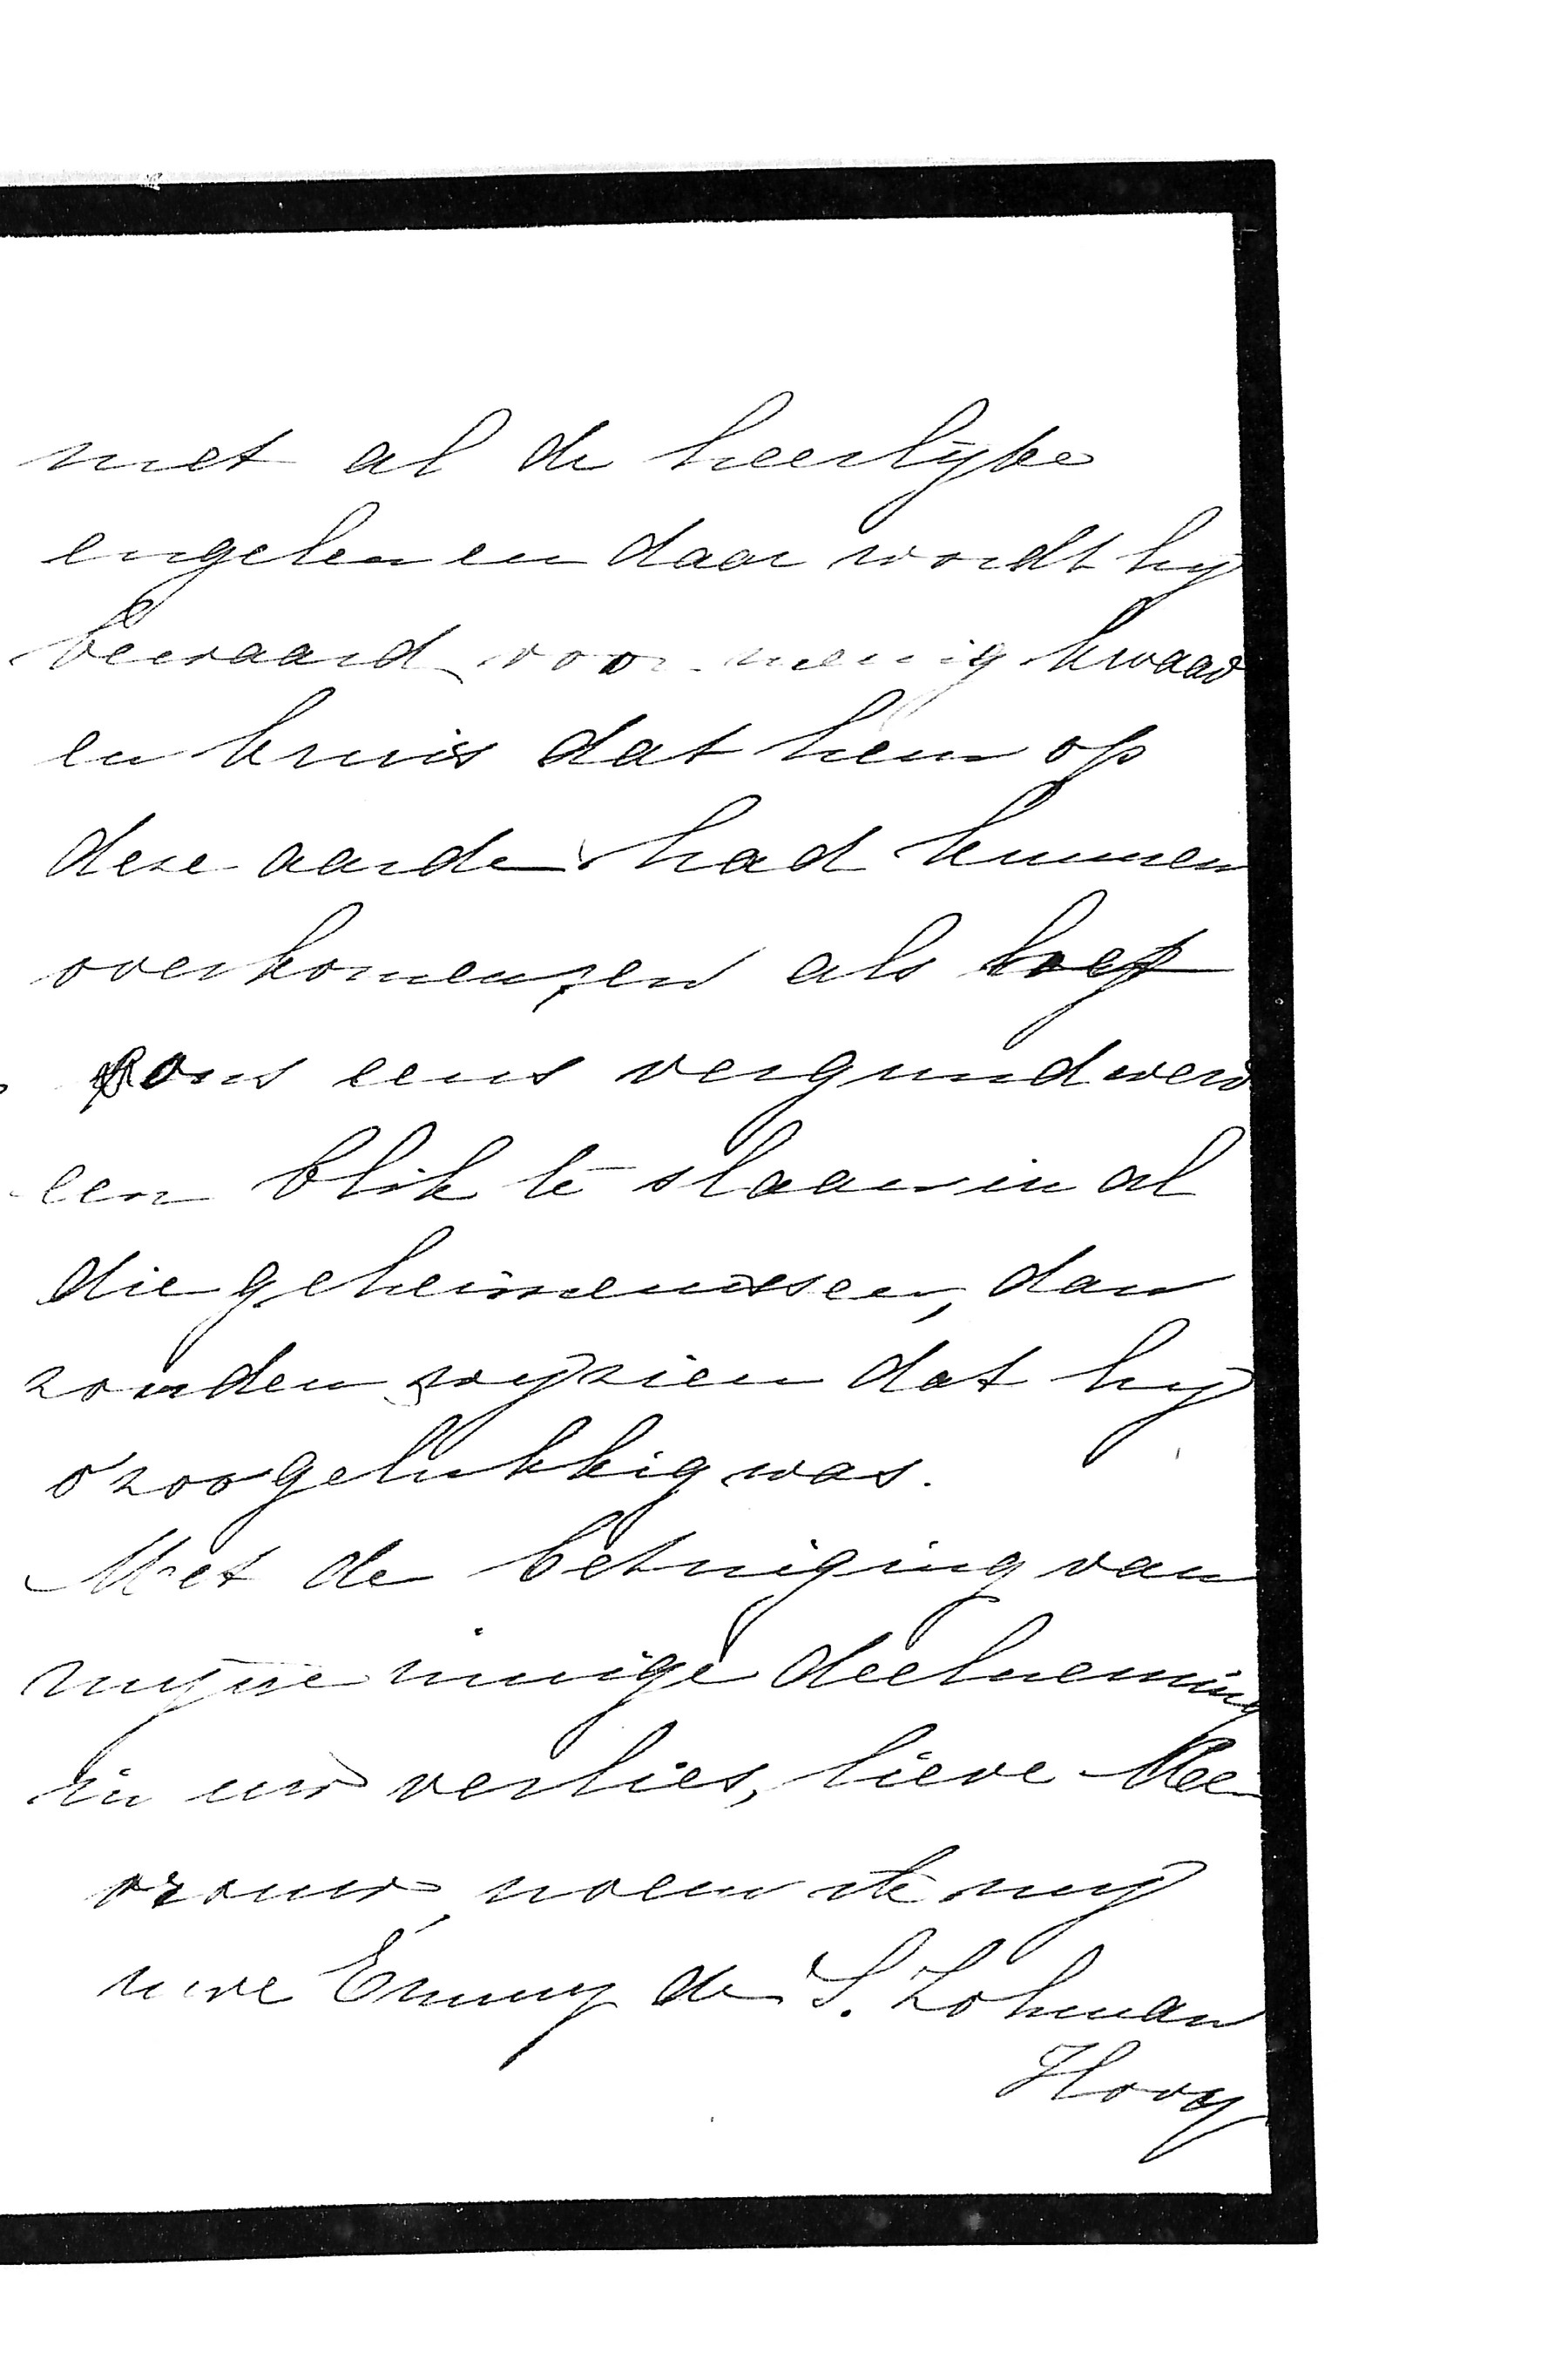 met al de heerlyke
engelen en daar wordt hy
bewaard voor menig kwaad
en kruis dat hem op
deze aarde had kunnen
overkomen, en als het
ons eens vergund werd
een blik te slaan in al
die geheimenissen, dan
zouden wy zien dat hy
o zoo gelukkig was.
Met de betuiging van
myne innige deelneming
in uw verlies, lieve Mee
vrouw, noem ik my
uwe Emmy de S. Lohman
Hooy